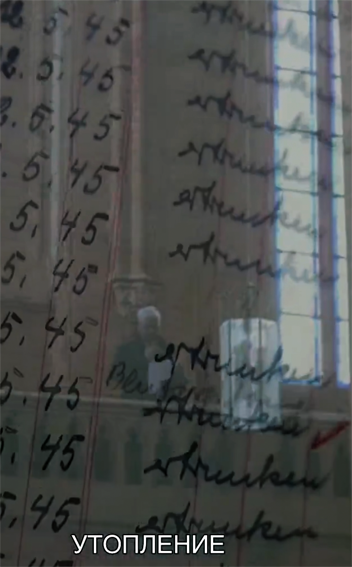 2. 5. 45 ertrunken
2. 5. 45 ertrunken
2. 5. 45 ertrunken
. 5. 45 ertrunken
5. 45 ertrunken
5. 45 ertrunken
5. 45 ertrunken
5. 45 ertrunken
5. 45 ertrunken
5. 45 ertrunken
УТОПЛЕНИЕ